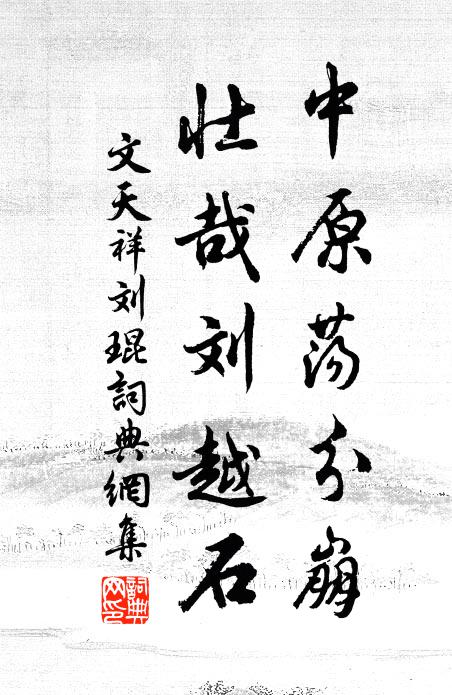 中原荡分崩
壮哉刘越石
文天祥刘琨詞典網集
詞典网印